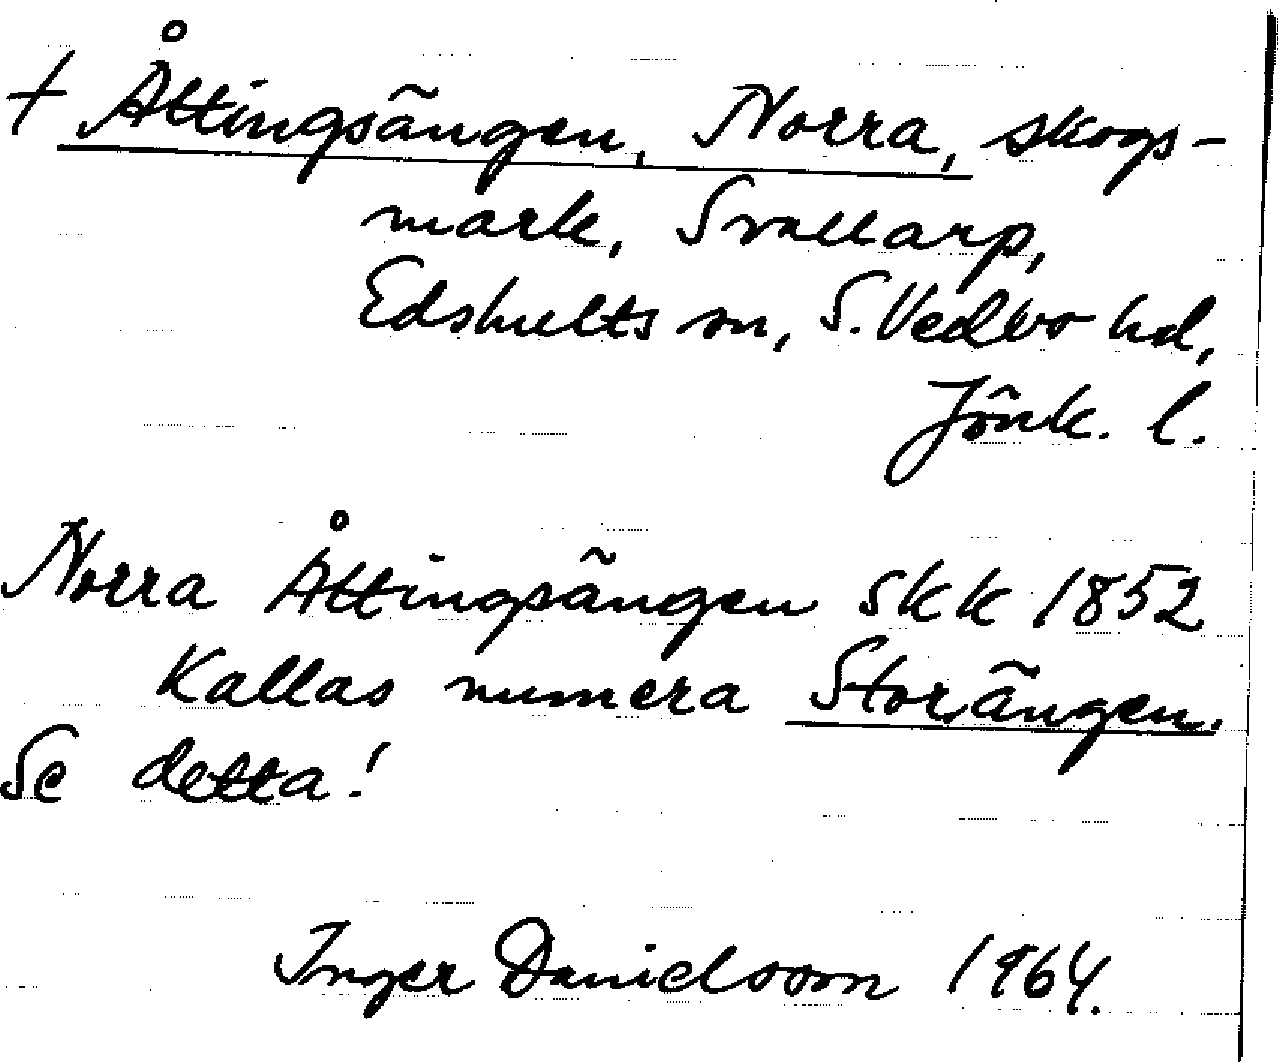 † Åttingsängen, Norra, skogs-
mark, Svallarp,
Edshults sn, S. Vedbo hd,
Jönk. l.
Norra Åttingsängen skk 1852
Kallas numera Storängen.
Se detta!
Inger Danielsson 1964.